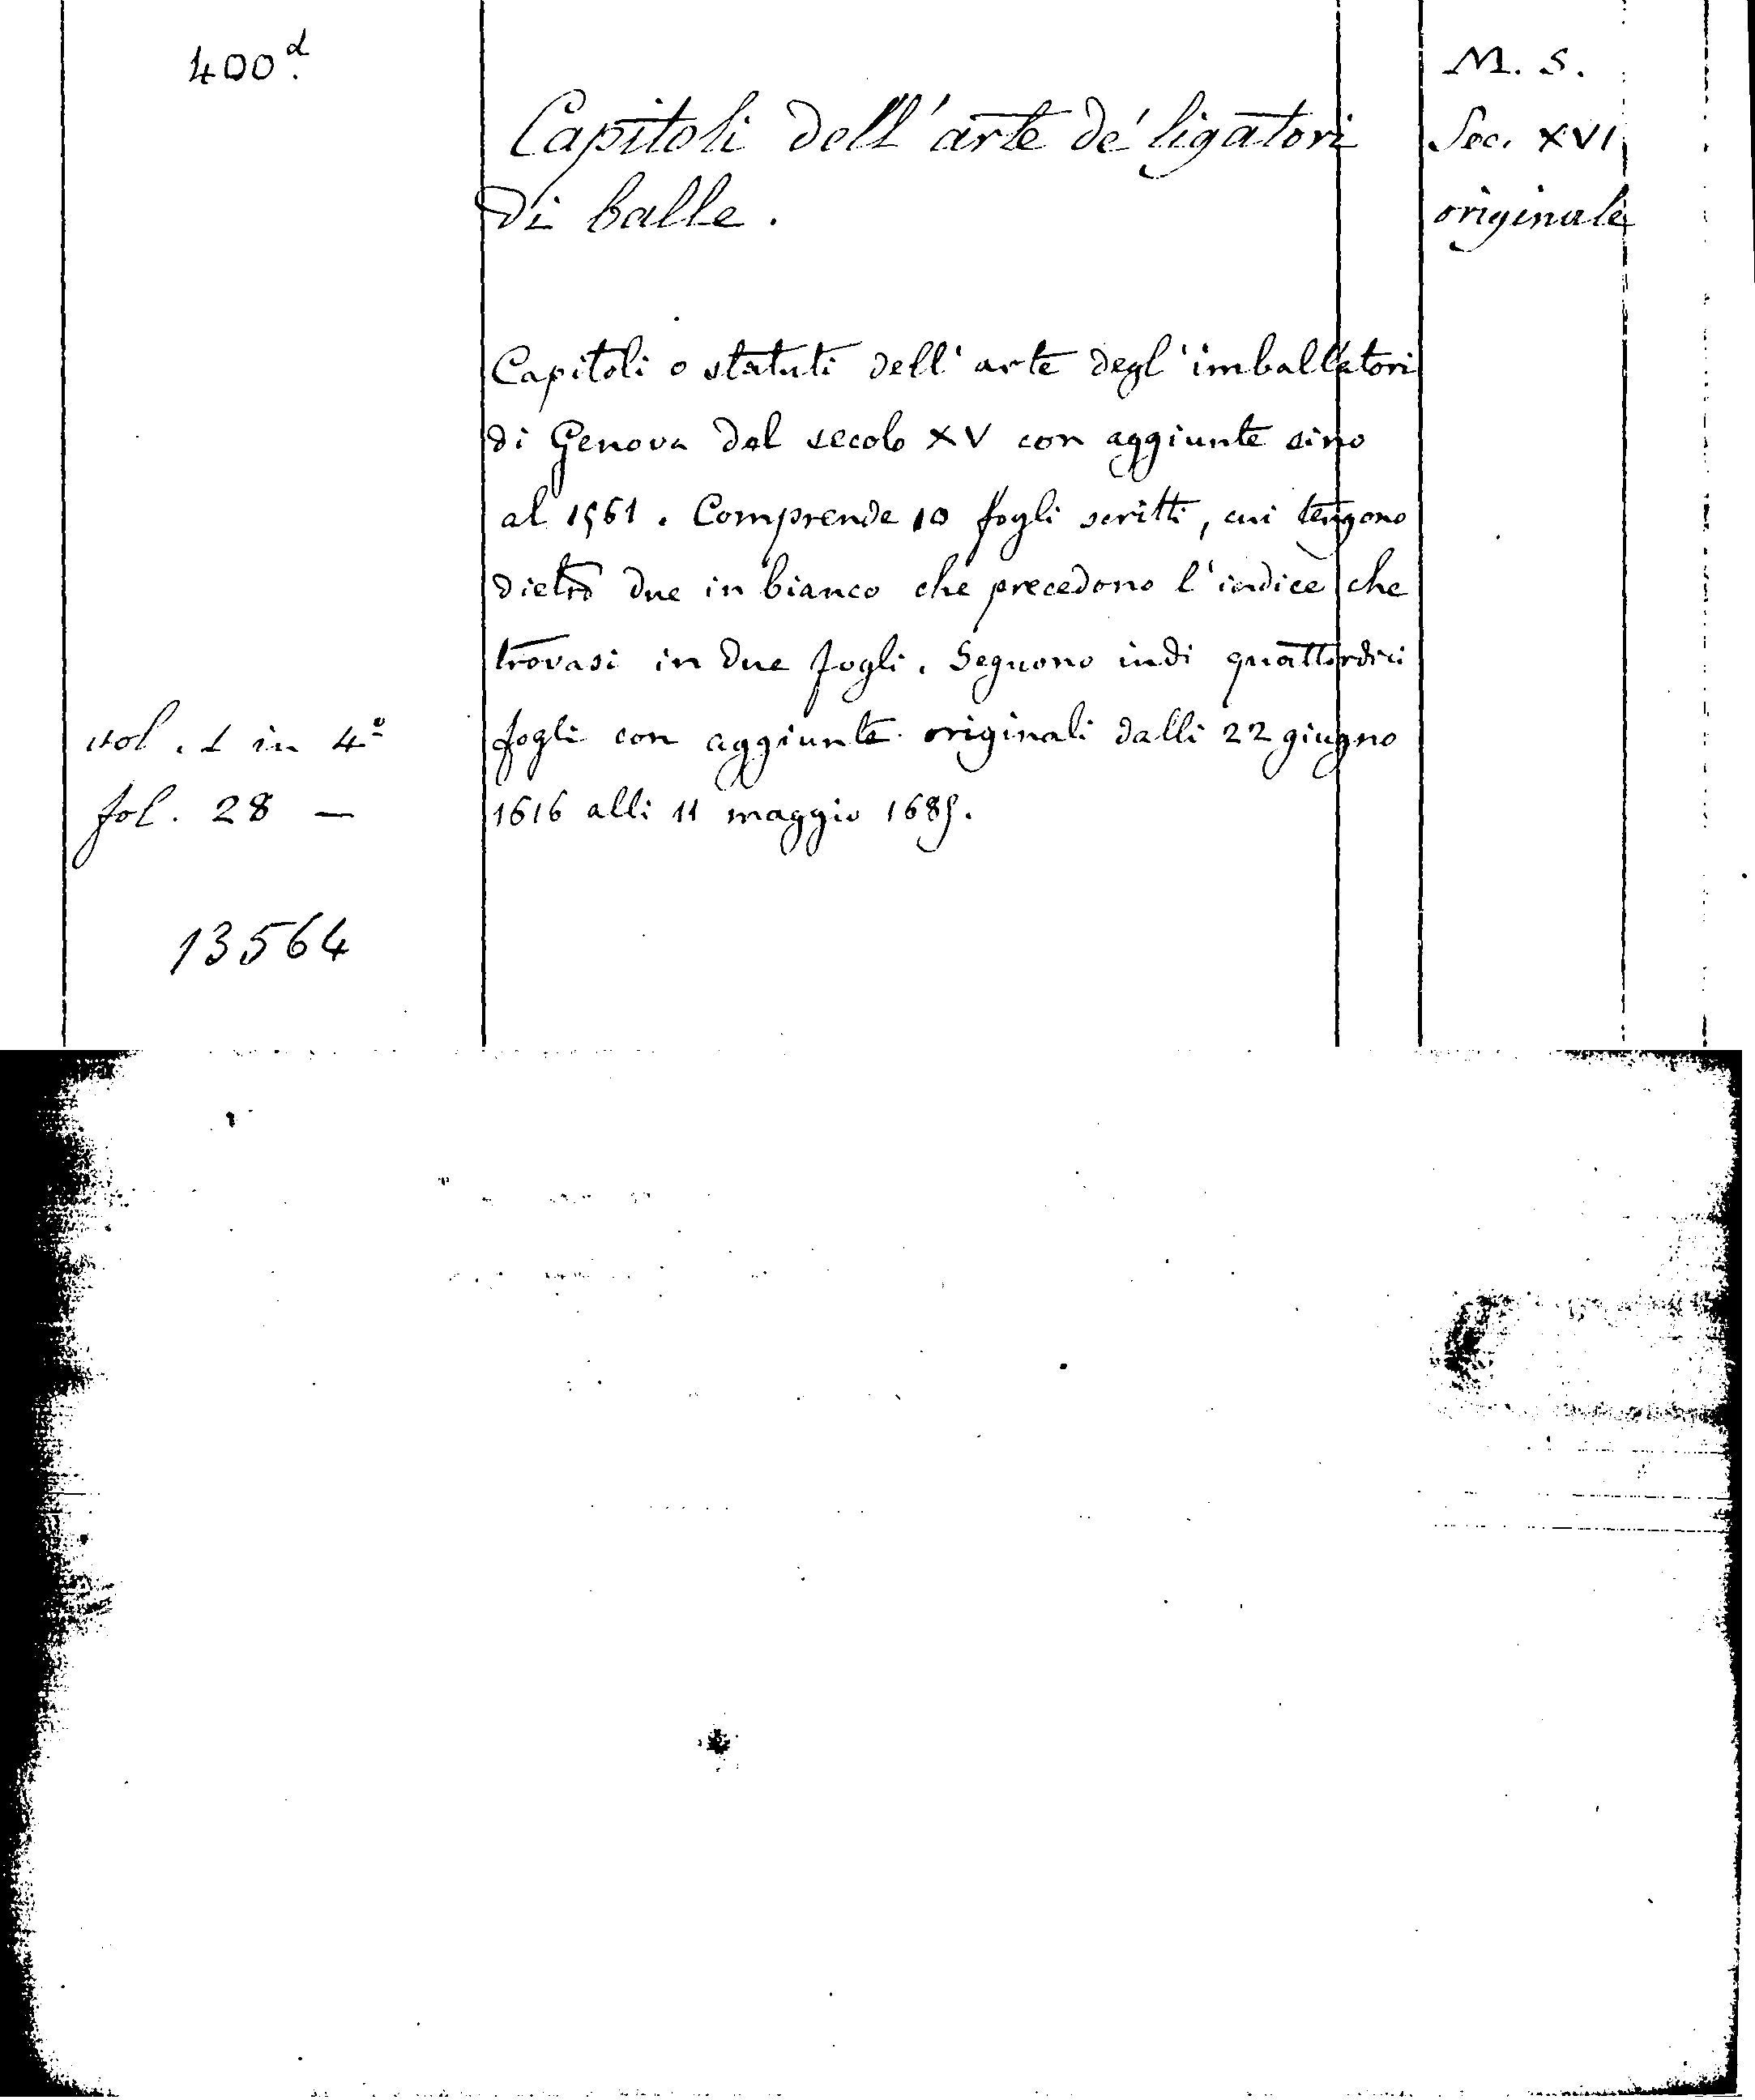 400.d
M. S.
Capitoli dell'arte de' ligatori
Sec. XVI
di balle.
originale
Capitoli o statuti dell'arte degl'imballatori
di Genova del secolo XV con aggiunte sino
al 1561. Comprende 10 fogli scritti, cui tengono
dietro due in bianco che precedono l'indice che
trovasi in due fogli. Seguono indi quattordici
vol. 1 in 4º
fogli con aggiunte originali dalli 22 giugno
fol. 28 —
1616 alli 11 maggio 1685.
13564